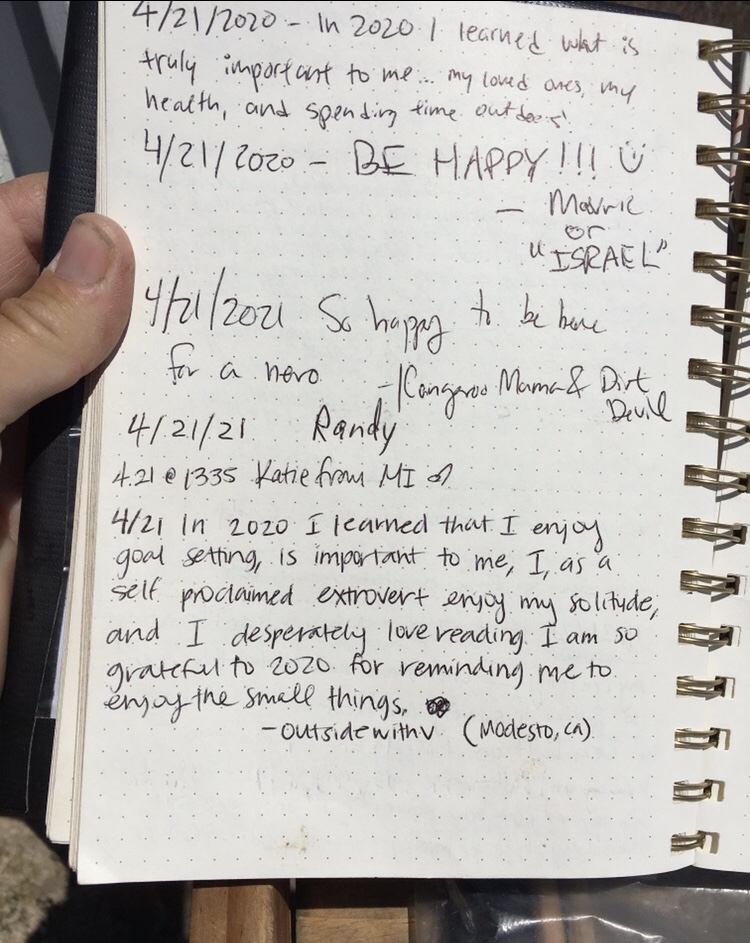 4/21/2020 – In 2020 I learned what is
truly important to me... my loved ones, my
health, and spending time outdoors!
4/21/2020 – BE HAPPY!!! Ü
— Mavric
or
"ISRAEL"
4/21/2021 So happy to be here
for a nero –Kangaroo Mama & Dirt
Devil
4/21/21 Randy
4.21 @ 1335 Katie from MI
4/21 In 2020 I learned that I enjoy
goal setting, is important to me, I, as a
self proclaimed extrovert enjoy my solitude,
and I desperately love reading. I am so
grateful to 2020 for reminding me to
enjoy the small things.
–outsidewithv (Modesto, ca)